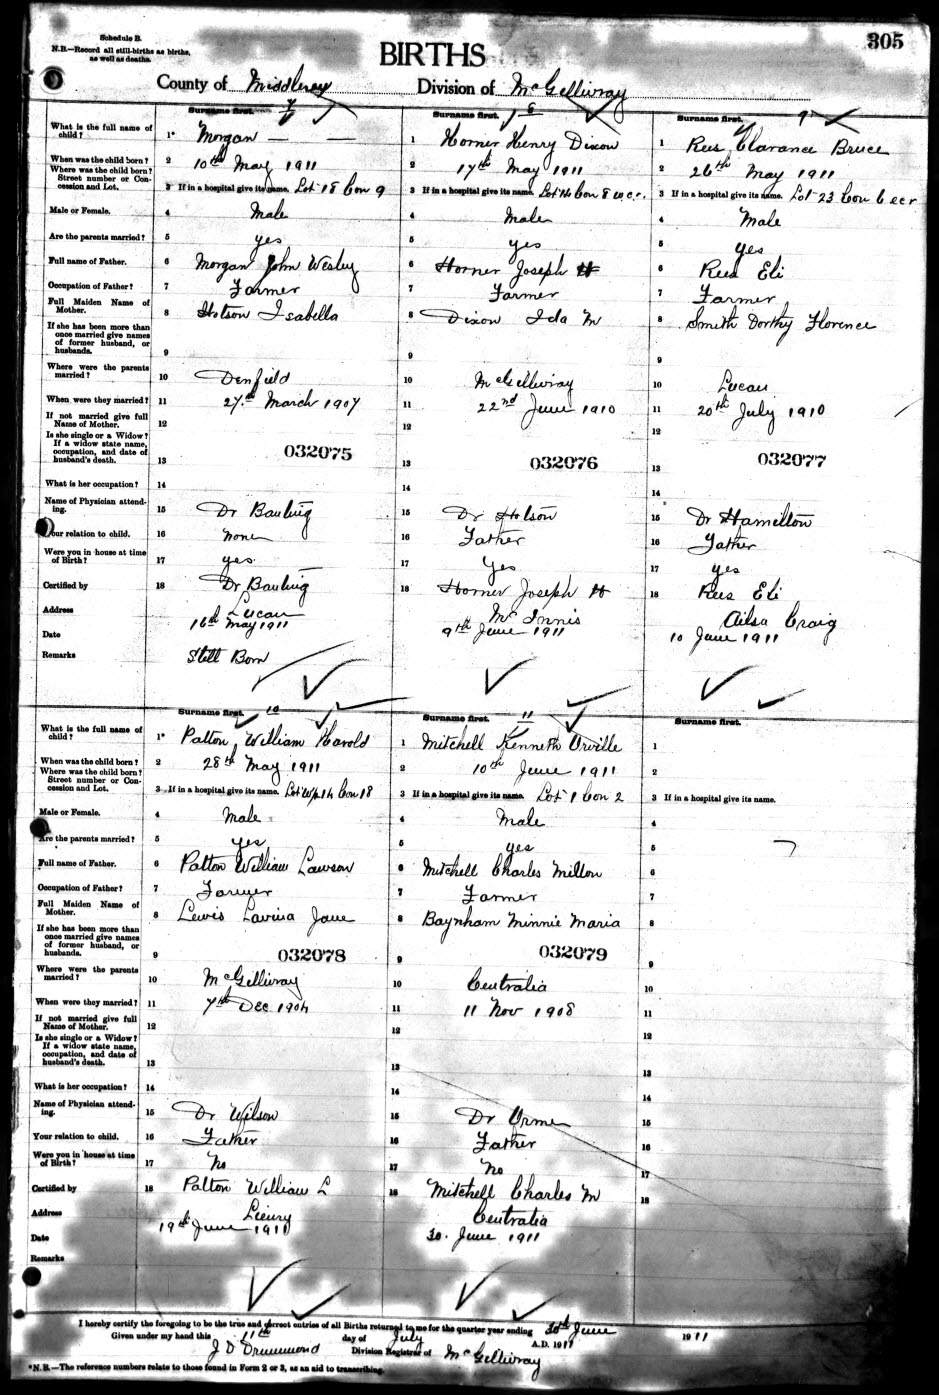 Schedule B.
N.B.—Record all still-births as births,
as well as deaths.
305
BIRTHS
County of Middlesex
Division of McGillivray
Surname first. 7
Surname first. 8
Surname first. 9
What is the full name of child?
1* Morgan — —
1 Horner Henry Dixon
1 Rees Clarance Bruce
When was the child born?
2 10th May 1911
2 17th May 1911
2 26th May 1911
Where was the child born? Street number or Concession and Lot.
3 If in a hospital give its name. Lot 18 Con 9
3 If in a hospital give its name. Lot 14 Con 8 w.c.r.
3 If in a hospital give its name. Lot 23 Con 6 ecr
Male or Female.
4 Male
4 male
4 Male
Are the parents married?
5 yes
5 yes
5 yes
Full name of Father.
6 Morgan John Wesley
6 Horner Joseph H
6 Rees Eli
Occupation of Father?
7 Farmer
7 Farmer
7 Farmer
Full Maiden Name of Mother.
8 Hotson Isabella
8 Dixon Ida M
8 Smith Dorthy Florence
If she has been more than once married give names of former husband, or husbands.
9
9
9
Where were the parents married?
10 Denfield
10 McGillivray
10 Lucan
When were they married?
11 27th March 1907
11 22nd June 1910
11 20th July 1910
If not married give full Name of Mother.
12
12
12
Is she single or a Widow? If a widow state name, occupation, and date of husband's death.
13 032075
13 032076
13 032077
What is her occupation?
14
14
14
Name of Physician attending.
15 Dr Banting
15 Dr Hotson
15 Dr Hamilton
Your relation to child.
16 None
16 Father
16 Father
Were you in house at time of Birth?
17 yes
17 yes
17 yes
Certified by
18 Dr Banting
18 Horner Joseph H
18 Rees Eli
Address
Lucan
McInnis
Ailsa Craig
Date
16th May 1911
9th June 1911
10 June 1911
Remarks
Still Born
Surname first. 10
Surname first. 11
Surname first.
What is the full name of child?
1* Patton William Harold
1 Mitchell Kenneth Orville
1
When was the child born?
2 28th May 1911
2 10th June 1911
2
Where was the child born? Street number or Concession and Lot.
3 If in a hospital give its name. Lot Wpt 14 Con 18
3 If in a hospital give its name. Lot 1 Con 2
3 If in a hospital give its name.
Male or Female.
4 Male
4 Male
4
Are the parents married?
5 yes
5 yes
5
Full name of Father.
6 Patton William Lawson
6 Mitchell Charles Milton
6
Occupation of Father?
7 Farmer
7 Farmer
7
Full Maiden Name of Mother.
8 Lewis Lavina Jane
8 Baynham Minnie Maria
8
If she has been more than once married give names of former husband, or husbands.
9 032078
9 032079
9
Where were the parents married?
10 McGillivray
10 Centralia
10
When were they married?
11 7th Dec 1904
11 11 Nov 1908
11
If not married give full Name of Mother.
12
12
12
Is she single or a Widow? If a widow state name, occupation, and date of husband's death.
13
13
13
What is her occupation?
14
14
14
Name of Physician attending.
15 Dr Wilson
15 Dr Orme
15
Your relation to child.
16 Father
16 Father
16
Were you in house at time of Birth?
17 No
17 No
17
Certified by
18 Patton William L
18 Mitchell Charles M
18
Address
Lieury
Centralia
Date
19th June 1911
30. June 1911
Remarks
I hereby certify the foregoing to be the true and correct entries of all Births returned to me for the quarter year ending 30th June 1911
Given under my hand this 11th day of July A.D. 1911
J D Drummond Division Registrar of McGillivray
*N.B.—The reference numbers relate to those found in Form 2 or 3, as an aid to transcribing.